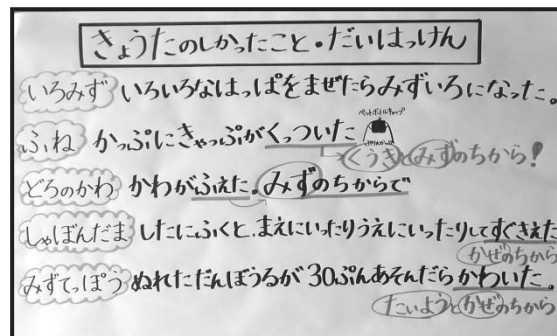 きょうたのしかったこと・だいはっけん
いろみず いろいろなはっぱをまぜたらみずいろになった。
ふね かっぷにきゃっぷがくっついた
ペットボトルキャップ
くうきとみずのちから!
どろのかわ かわがふえた。みずのちからで
しゃぼんだま したにふくと、まえにいったりうえにいったりしてすぐきえた
かぜのちから
みずてっぽう ぬれただんぼうるが30ぷんあそんだらかわいた。
たいようとかぜのちから